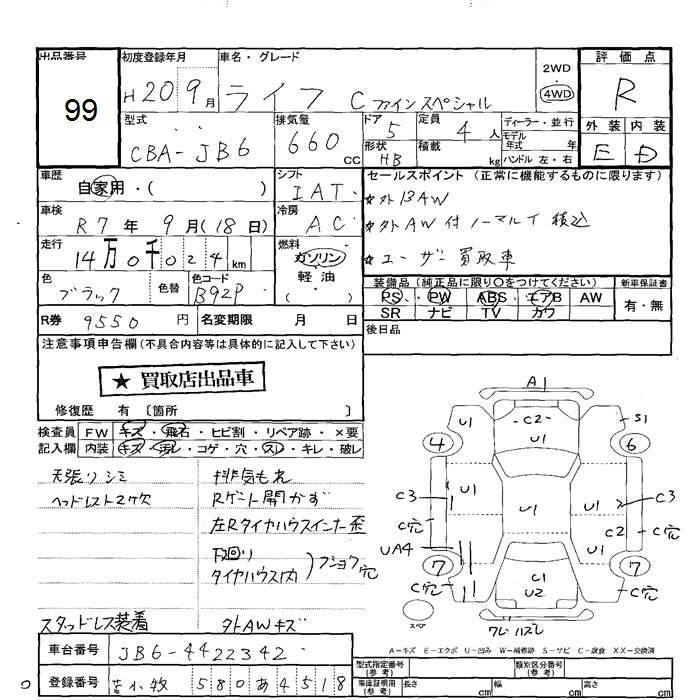 出品番号 初度登録年月 車名・グレード 2WD 評価点
99
H20 9月 ライフ C ファインスペシャル 4WD R
型式 排気量 ドア 定員 ディーラー・並行 外装 内装
CBA-JB6 660 CC 5 4 人 モデル年式 年 E D
形状 積載 ハンドル 左・右
HB kg
車歴 シフト セールスポイント (正常に機能するものに限ります)
自家用・( ) IAT
★外13AW
車検 冷房
R7年 9月(18日) AC ★外AW付ノーマルT積込
走行 燃料
14万0千024km ガソリン ★ユーザー買取車
軽油
( )
色 色替 色コード
ブラック B92P
装備品 (純正品に限り○をつけてください) 新車保証書
PS PW ABS エアB AW 有・無
SR ナビ TV カワ
R券 9550円 名変期限 月 日 後日品
注意事項申告欄(不具合内容等は具体的に記入して下さい)
★ 買取店出品車
修復歴 有 〔箇所 〕
検査員 FW キズ・飛石・ヒビ割・リペア跡・×要
記入欄 内装 キズ・汚レ・コゲ・穴・スレ・キレ・破レ
天張りシミ 排気もれ
ヘッドレスト2ケ欠 Rゲート開かず
左Rタイヤハウスインナー歪
下回り
タイヤハウス内 フショク穴
スタッドレス装着 外AWキズ
A1
U1 C2 U1 S1
4 6
C3 U1 U1 U1 C3
C穴 C2 C穴
UA4 U1
7 7
C穴 U1 U2 C穴
スペア ワレハズレ
A-キズ E-エクボ U-凹み W-補修跡 S-サビ C-腐食 XX-交換済
車台番号 JB6-4422342
登録番号 580あ4518
型式指定番号(参考) 類別区分番号(参考)
車庫証明用(参考) 長さ cm 幅 cm 高さ cm